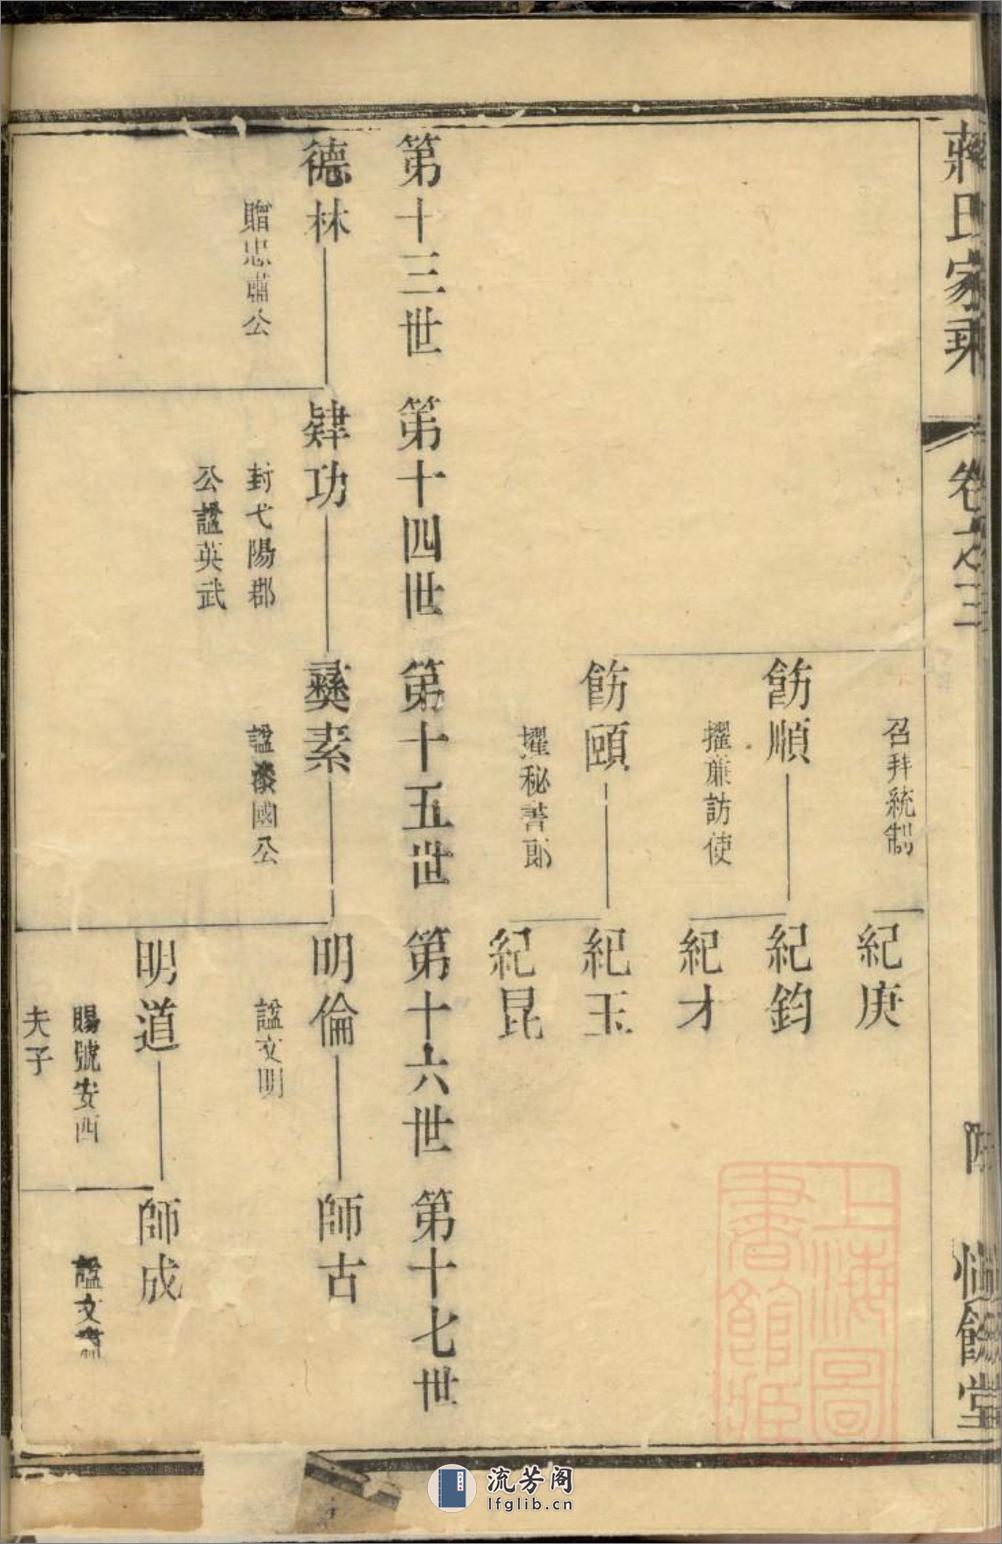 蔣氏家乘
卷之三
餘堂
召拜統制
紀庚
飭順
擢廉訪使
紀鈞
紀才
飭頤
擢秘書郎
紀玉
紀昆
第十三世 第十四世 第十五世 第十六世 第十七世
德林
贈忠肅公
肄功
封弋陽郡
公諡英武
彞素
國公
明倫
諡文明
師古
明道
賜號安西
夫子
師成
諡文
上海圖
書館藏
流芳阁
lfglib.cn